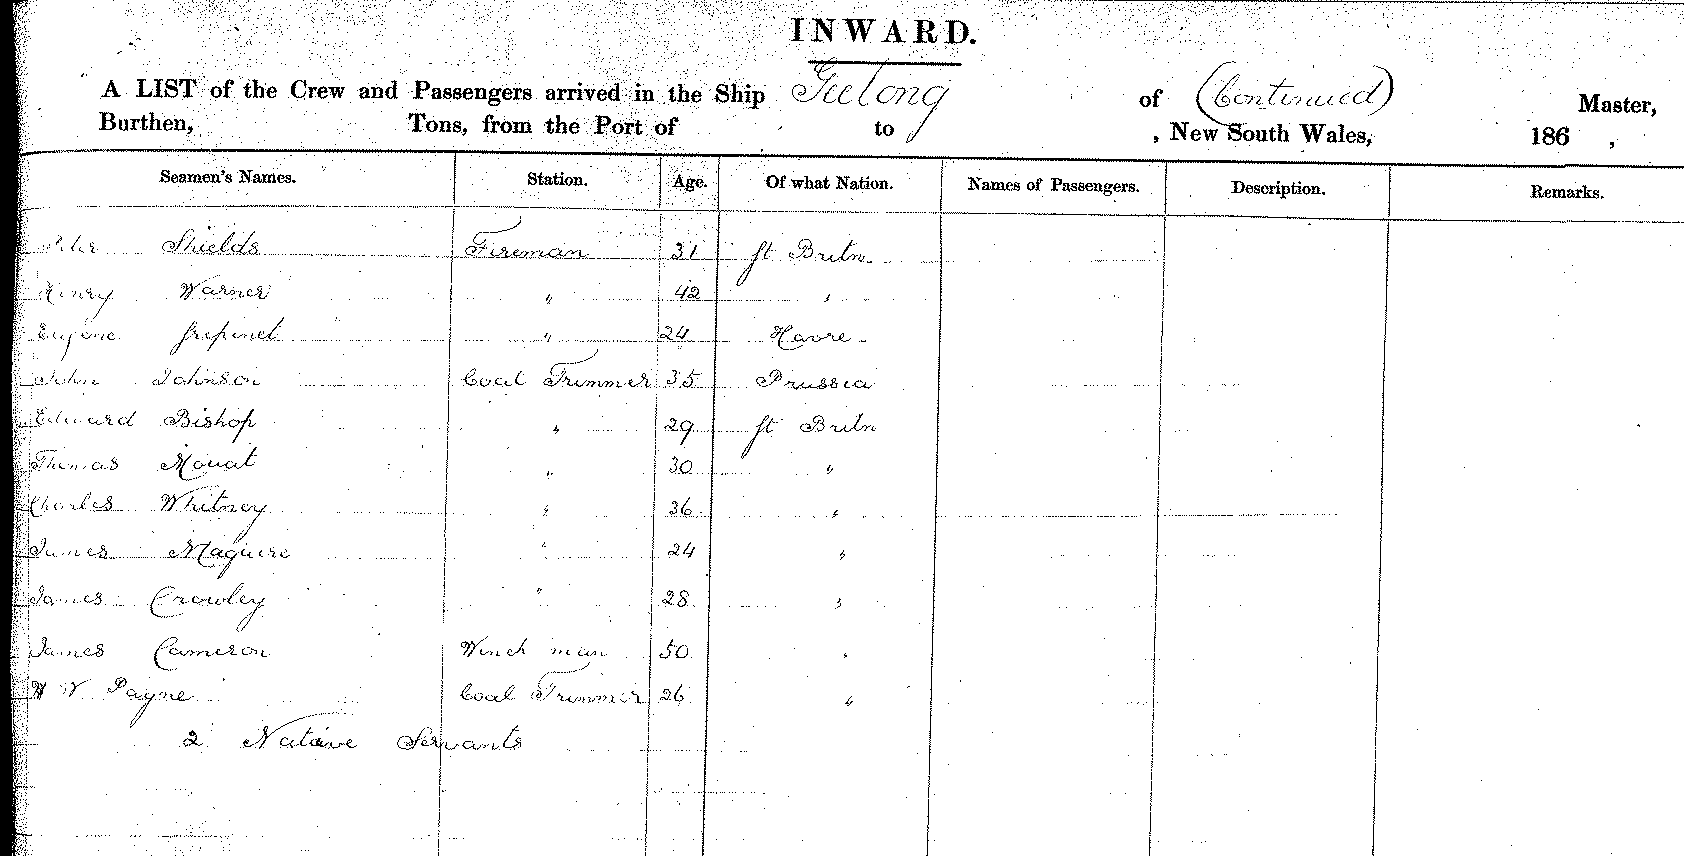 INWARD.
A LIST of the Crew and Passengers arrived in the Ship Geelong of (Continued) Master,
Burthen, Tons, from the Port of to , New South Wales, 186 ,
Seamen's Names. Station. Age. Of what Nation. Names of Passengers. Description. Remarks.
Peter Shields Fireman 31 Gt Britn
Henry Warner " 42 "
Eugene " 24 Havre
John Johnson Coal Trimmer 35 Prussia
Edward Bishop " 29 Gt Britn
Thomas Mouat " 30 "
Charles Whitney " 36 "
James Maguire " 24 "
James Crowley " 28 "
James Cameron Winch man 50 "
W W Payne Coal Trimmer 26 "
2 Native Servants